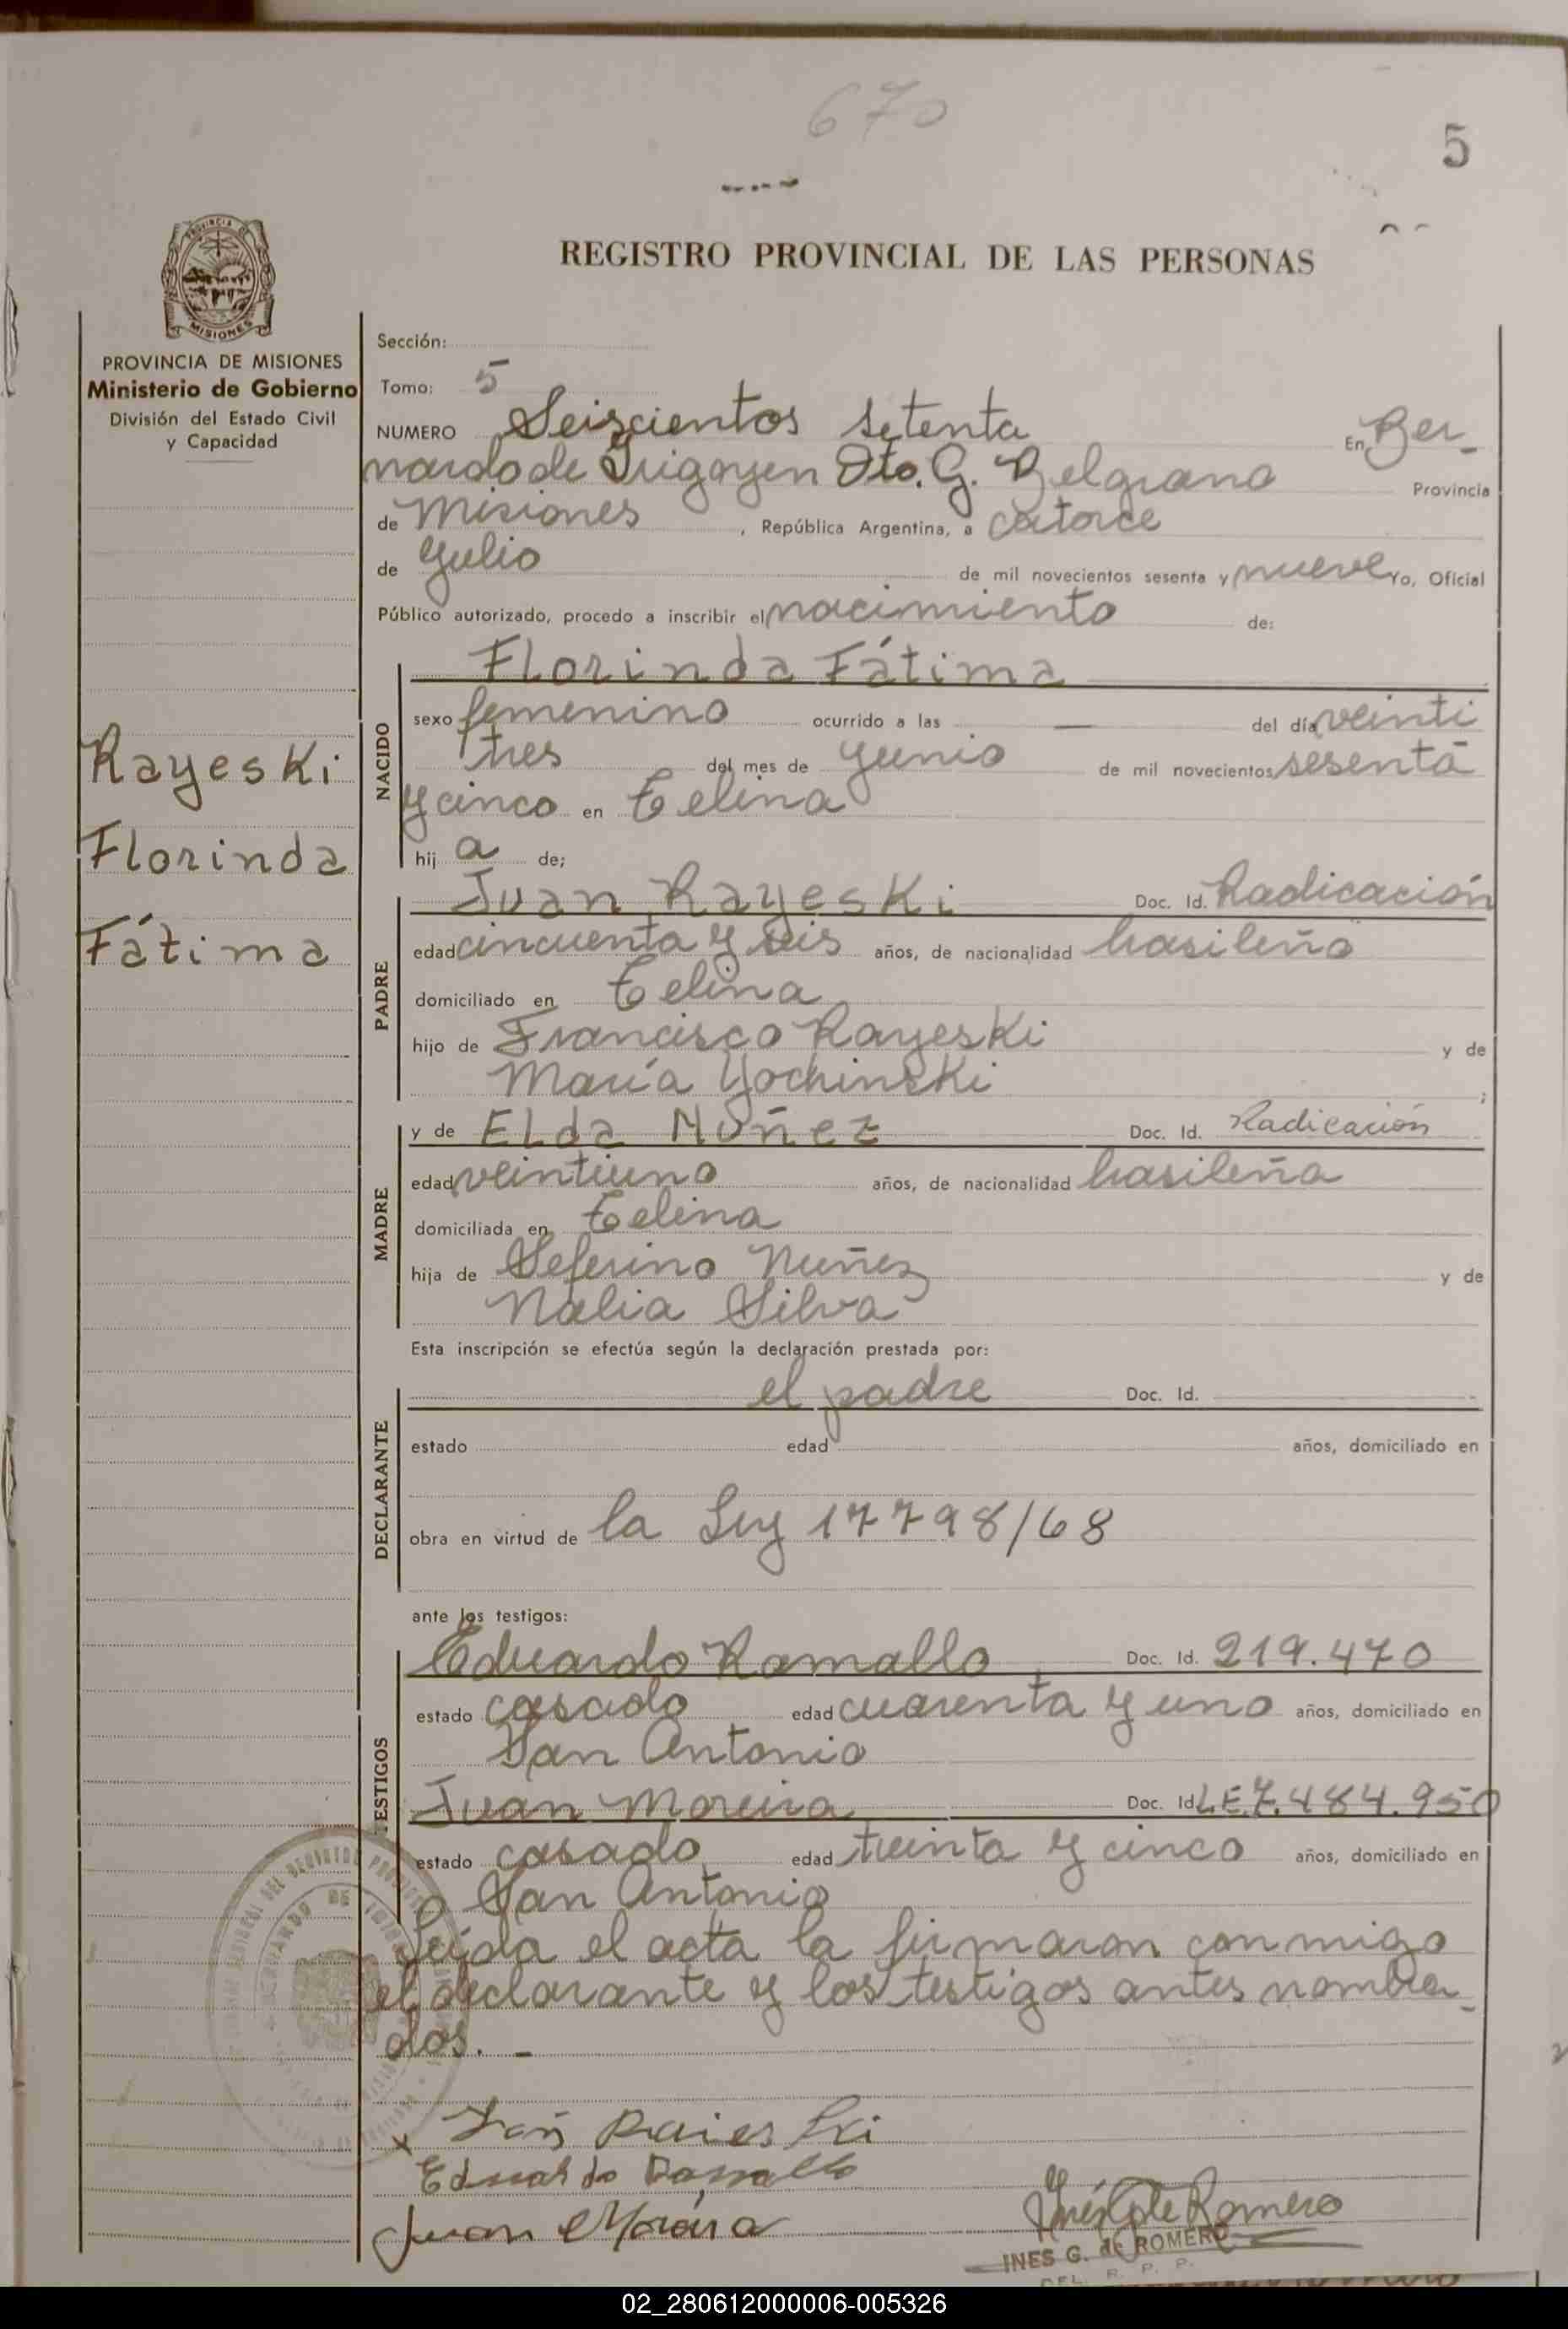 670
5
REGISTRO PROVINCIAL DE LAS PERSONAS
PROVINCIA DE MISIONES
Ministerio de Gobierno
División del Estado Civil
y Capacidad
Sección:
Tomo: 5
NUMERO Seiscientos setenta En Ber-
nardo de Irigoyen Dto. G. Belgrano Provincia
de Misiones, República Argentina, a catorce
de Julio de mil novecientos sesenta y nueve Yo, Oficial
Público autorizado, procedo a inscribir el nacimiento de:
Rayeski
Florinda
Fátima
NACIDO
Florinda Fátima
sexo femenino ocurrido a las — del día veinti
tres del mes de Junio de mil novecientos sesenta
y cinco en Celina
hij a de;
PADRE
Juan Rayeski Doc. Id. Radicación
edad cincuenta y seis años, de nacionalidad brasileño
domiciliado en Celina
hijo de Francisco Rayeski y de
María Yochinski ;
MADRE
y de Elda Nuñez Doc. Id. Radicación
edad veintiuno años, de nacionalidad brasileña
domiciliada en Celina
hija de Seferino Nuñez y de
Nalia Silva
Esta inscripción se efectúa según la declaración prestada por:
DECLARANTE
el padre Doc. Id.
estado edad años, domiciliado en
obra en virtud de la Ley 17798/68
ante los testigos:
TESTIGOS
Eduardo Ramallo Doc. Id. 219.470
estado casado edad cuarenta y uno años, domiciliado en
San Antonio
Juan Moreira Doc. Id L.E.7.484.950
estado casado edad treinta y cinco años, domiciliado en
San Antonio
Leída el acta la firmaron conmigo
el declarante y los testigos antes nombra-
dos. -
x Raieski
Eduardo Ramallo
Juan Moreira
Inés G de Romero
INES G. de ROMERO
DEL. R. P. P.
02_280612000006-005326